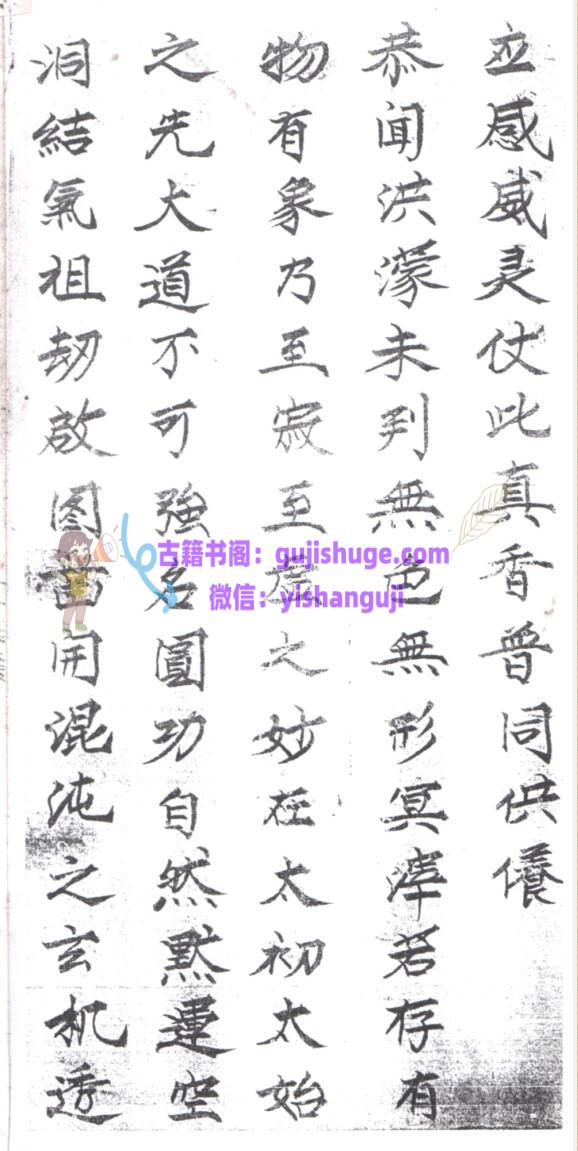 立感威灵仗此真香普同供養
恭闻洪濛未判無色無形冥涬若存有
物有象乃至寂至之妙在太初太始
之先大道不可強名圓功自然默運空
洞結氣祖劫啟图苗开混沌之玄机透
古籍书阁：gujishuge.com
微信：yishanguji